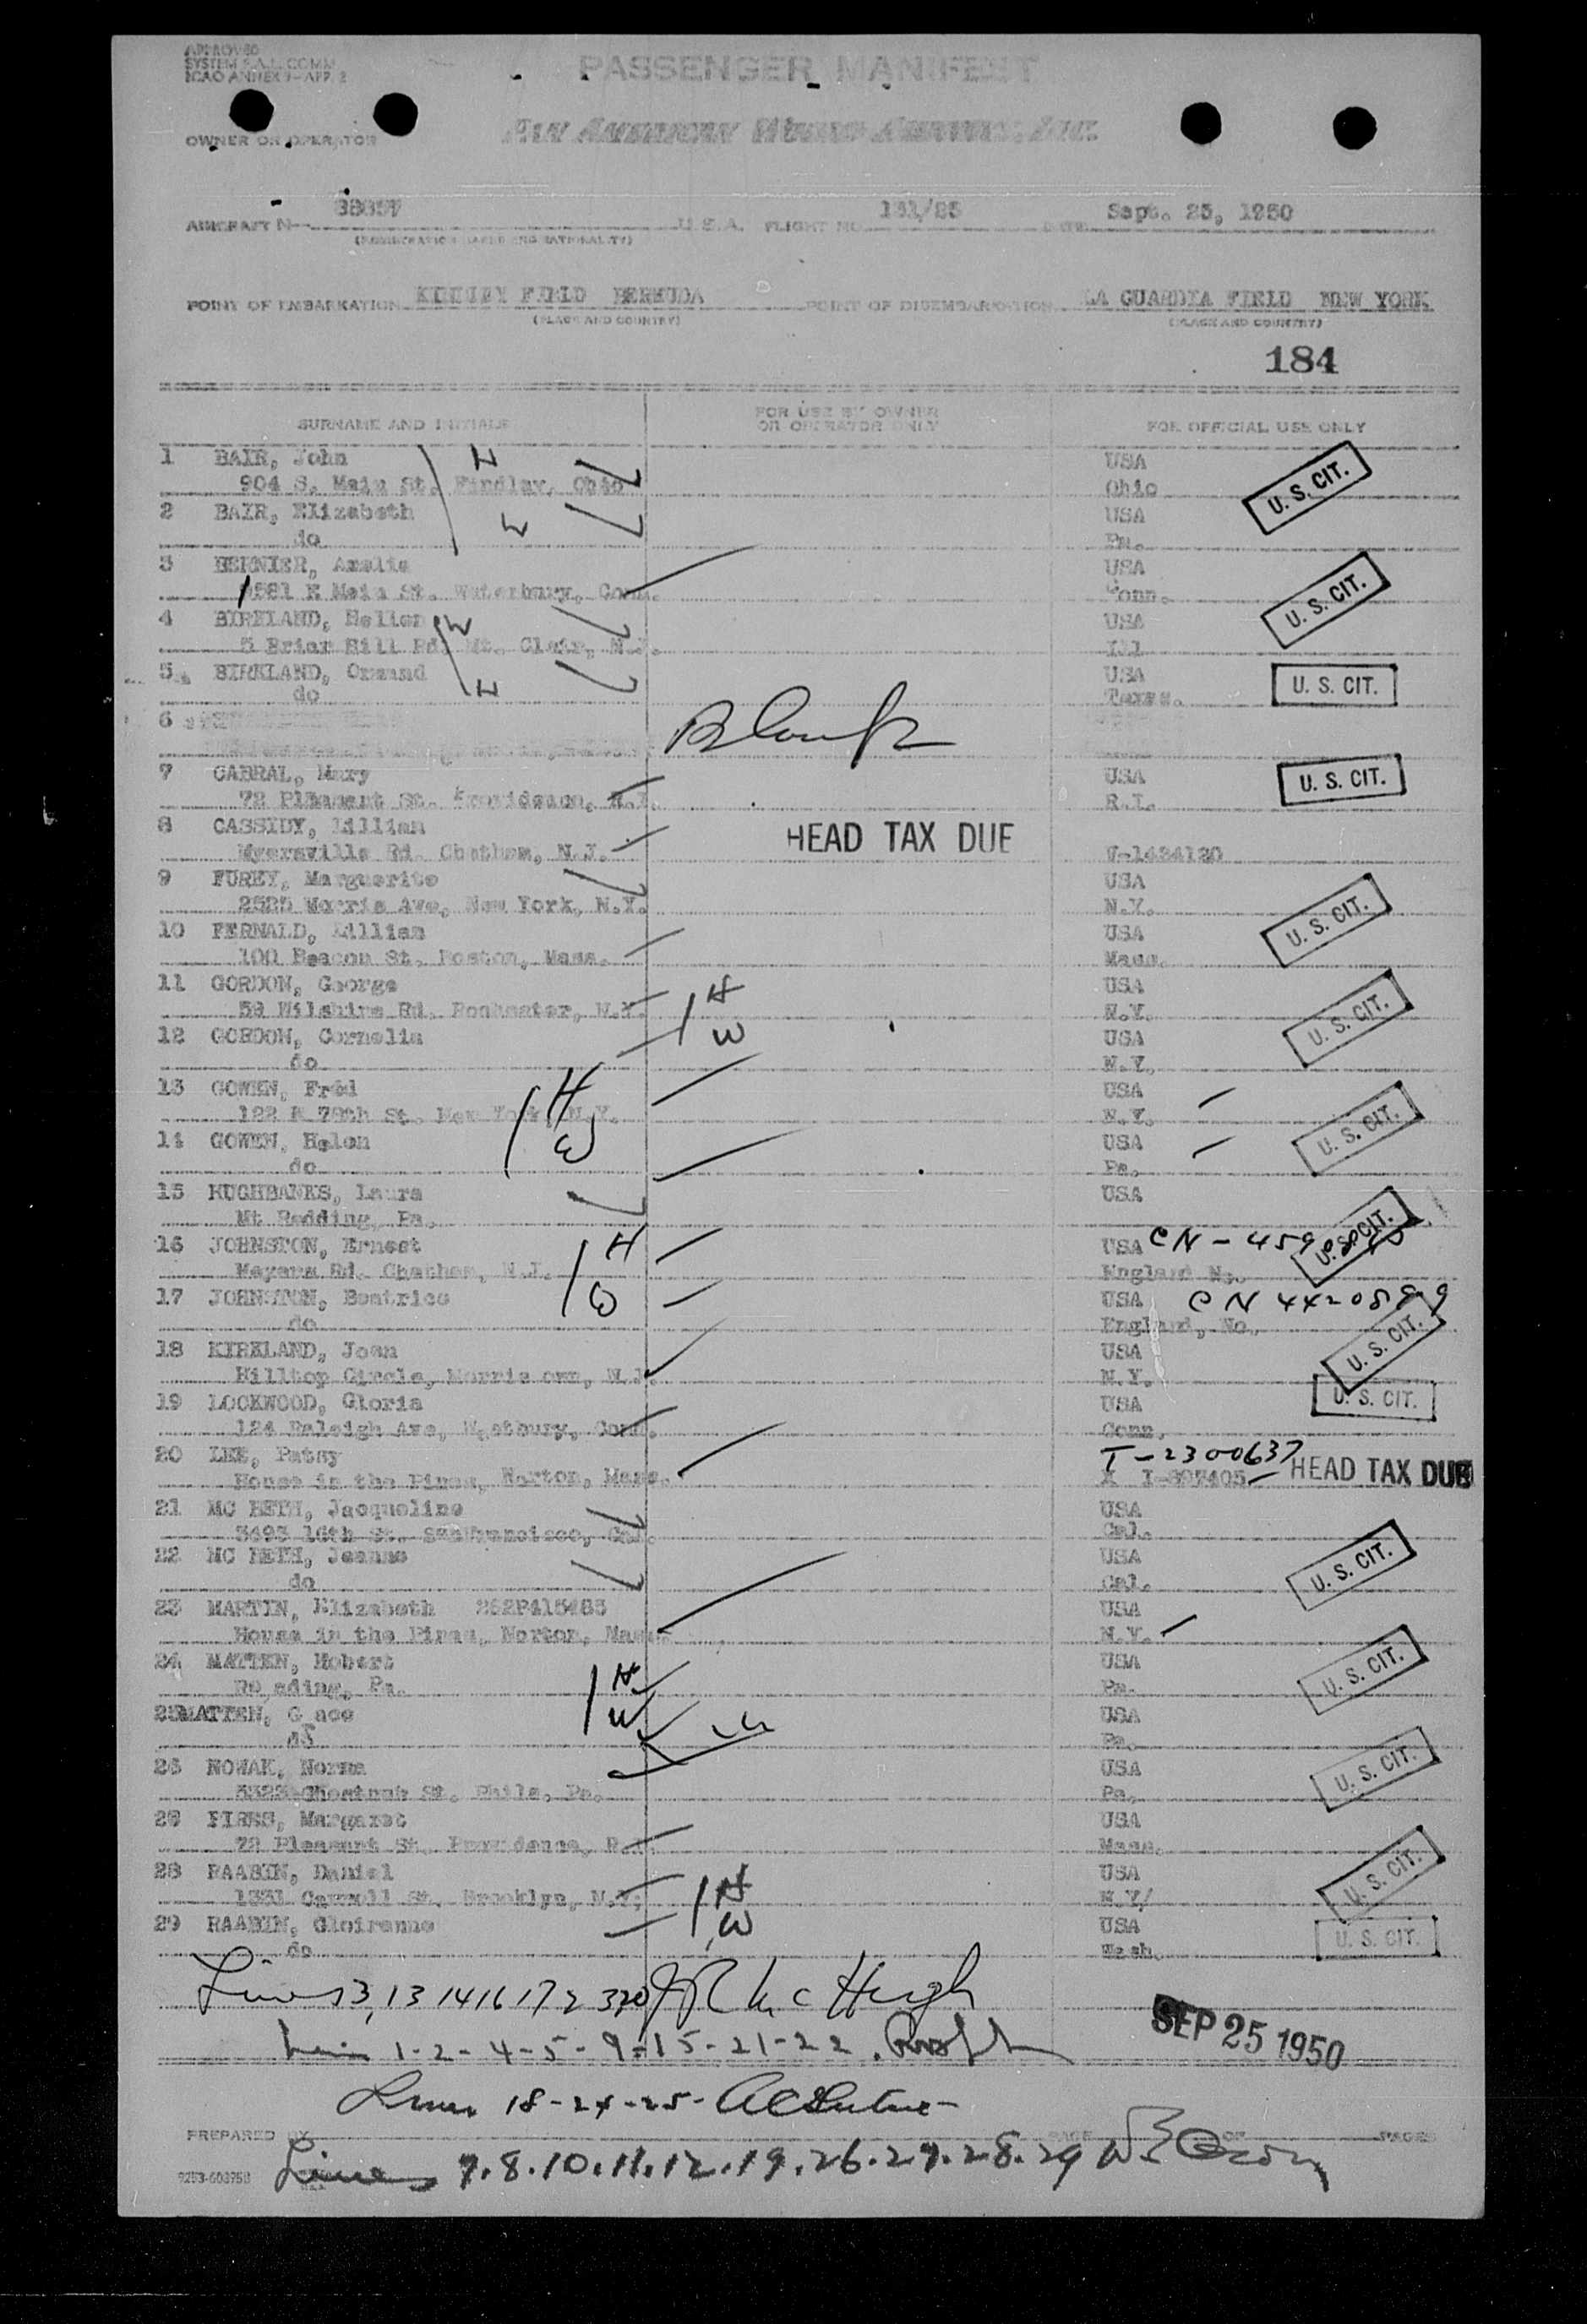 APPROVED
SYSTEM F.A.L. COMM
ICAO ANNEX 9-APP. 2
PASSENGER MANIFEST
OWNER OR OPERATOR
PAN AMERICAN WORLD AIRWAYS, INC.
AIRCRAFT N- U.S.A. FLIGHT NO. 131/25 DATE Sept. 25, 1950
(REGISTRATION MARKS AND NATIONALITY)
POINT OF EMBARKATION KINDLEY FIELD BERMUDA POINT OF DISEMBARKATION LA GUARDIA FIELD NEW YORK
(PLACE AND COUNTRY) (PLACE AND COUNTRY)
184
SURNAME AND INITIALS FOR USE BY OWNER OR OPERATOR ONLY FOR OFFICIAL USE ONLY
1 BAIR, John H USA
904 S. Main St. Findlay, Ohio Ohio U. S. CIT.
2 BAIR, Elizabeth W USA
do Pa.
3 BERNIER, Amelia USA
1581 E Main St. Waterbury, Conn. Conn. U. S. CIT.
4 BIRKLAND, Hellen W USA
5 Briar Hill Rd. Mt. Clair, N.J. Ill
5 BIRKLAND, Ormund H USA U. S. CIT.
do Texas.
6 Blank
7 CABRAL, Mary USA U. S. CIT.
72 Pleasant St. Providence, R.I. R.I.
8 CASSIDY, Lillian HEAD TAX DUE
Myersville Rd. Chatham, N.J. V-1434120
9 FUREY, Marguerite USA
2525 Morris Ave, New York, N.Y. N.Y. U. S. CIT.
10 FERNALD, Lillian USA
100 Beacon St. Boston, Mass. Mass.
11 GORDON, George H USA
59 Wilshire Rd. Rochester, N.Y. N.Y. U. S. CIT.
12 GORDON, Cornelia W USA
do N.Y.
13 GOWEN, Fred H USA
122 E 79th St. New York, N.Y. N.Y. U. S. CIT.
14 GOWEN, Helen W USA
do Pa.
15 HUGHBANKS, Laura USA
Mt Redding, Pa.
16 JOHNSTON, Ernest H USA CN - 459 U. S. CIT.
Meyers Rd. Chatham, N.J. England N.
17 JOHNSTON, Beatrice W USA CN 4420899
do England, No.
18 KIRKLAND, Joan USA U. S. CIT.
Hilltop Circle, Morris own, N.J. N.Y.
19 LOCKWOOD, Gloria USA U. S. CIT.
124 Raleigh Ave, Westbury, Conn. Conn.
20 LEE, Patsy T-2300637
House in the Pines, Norton, Mass. X I-397405 HEAD TAX DUE
21 MC BETH, Jacqueline USA
3493 16th St. SanFrancisco, Cal. Cal.
22 MC BETH, Jeanne USA U. S. CIT.
do Cal.
23 MARTIN, Elizabeth 262P415485 USA
House in the Pines, Norton, Mass. N.Y.
24 MATTEN, Robert H USA U. S. CIT.
Re ading, Pa. Pa.
25MATTEN, G ace W USA
Pa.
26 NOWAK, Norma USA U. S. CIT.
5323 Chestnut St. Phila, Pa. Pa.
PIRES, Margaret USA
72 Pleasant St. Providence, R.I. Mass.
28 RAABIN, Daniel H USA U. S. CIT.
1331 Carroll St. Brooklyn, N.Y. N.Y/
29 RAABIN, Gloirenne W USA U. S. CIT.
do Wash.
Lines 3, 13 14 16 17 23 20 McHugh
1-2-4-5-9-15-21-22
SEP 25 1950
Lines 18-24-25-
PREPARED BY PAGE OF PAGES
9253-603758 Lines 7.8.10.11.12.19.26.27.28.29